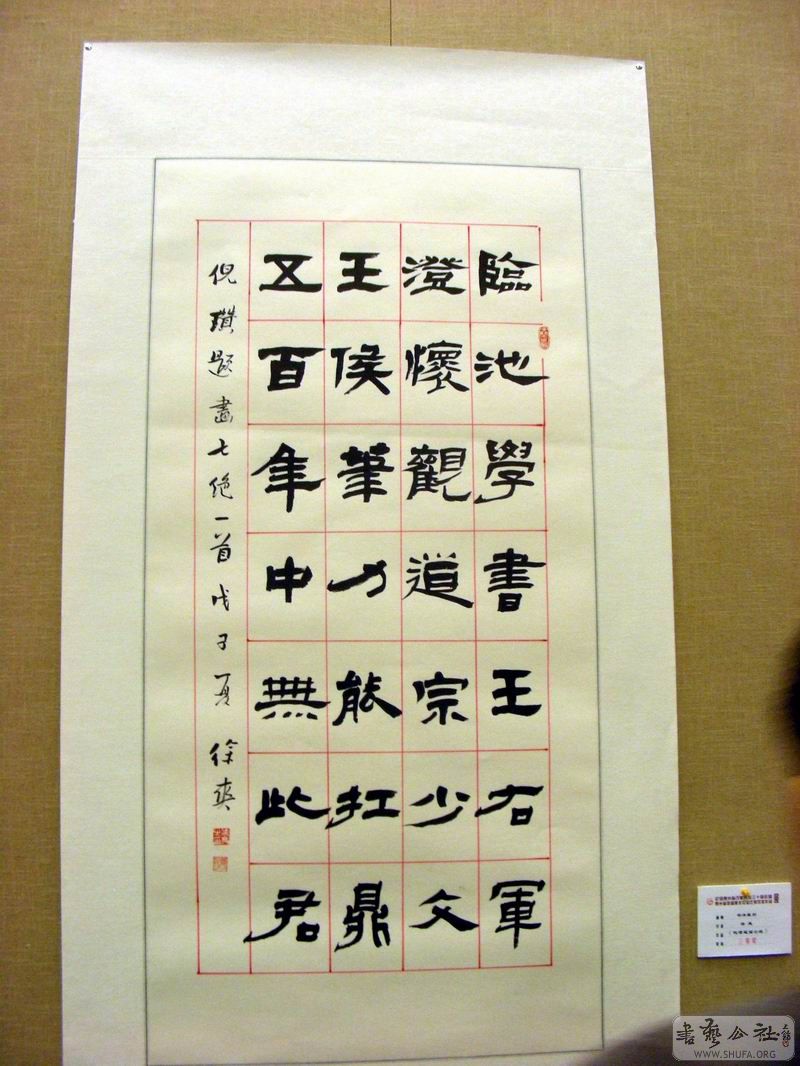 臨池學書王右軍
澄懷觀道宗少文
王侯筆力能扛鼎
五百年中無此君
倪瓚題畫七絕一首戊子夏
徐爽
三等獎
書藝公社
WWW.SHUFA.ORG